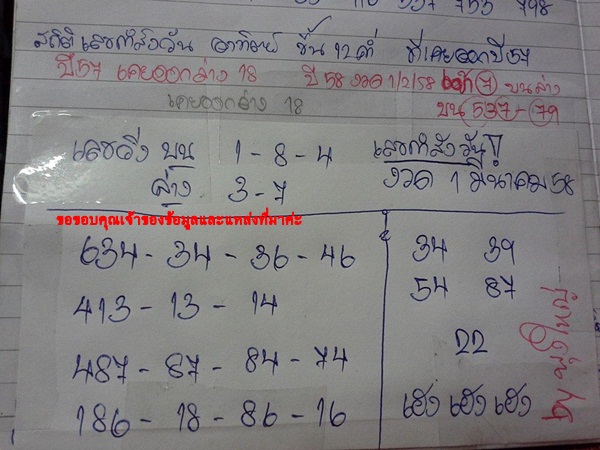 537 753 798
สถิติ เลขกำลังวัน อาทิตย์ ขึ้น 12 ค่ำ ที่เคยออกปี 57
ปี 57 เคยออกล่าง 18 ปี 58 งวด 1/2/58 7 บนล่าง
เคยออกล่าง 18 บน 537-79
เลขวิ่ง บน 1-8-4 เลขกำลังวัน!!
ล่าง 3-7 งวด 1 มีนาคม 58
ขอขอบคุณเจ้าของข้อมูลและแหล่งที่มาค่ะ
634-34-36-46 34 39
413-13-14 54 87
487-87-84-74 22
186-18-86-16 เฮง เฮง เฮง
by